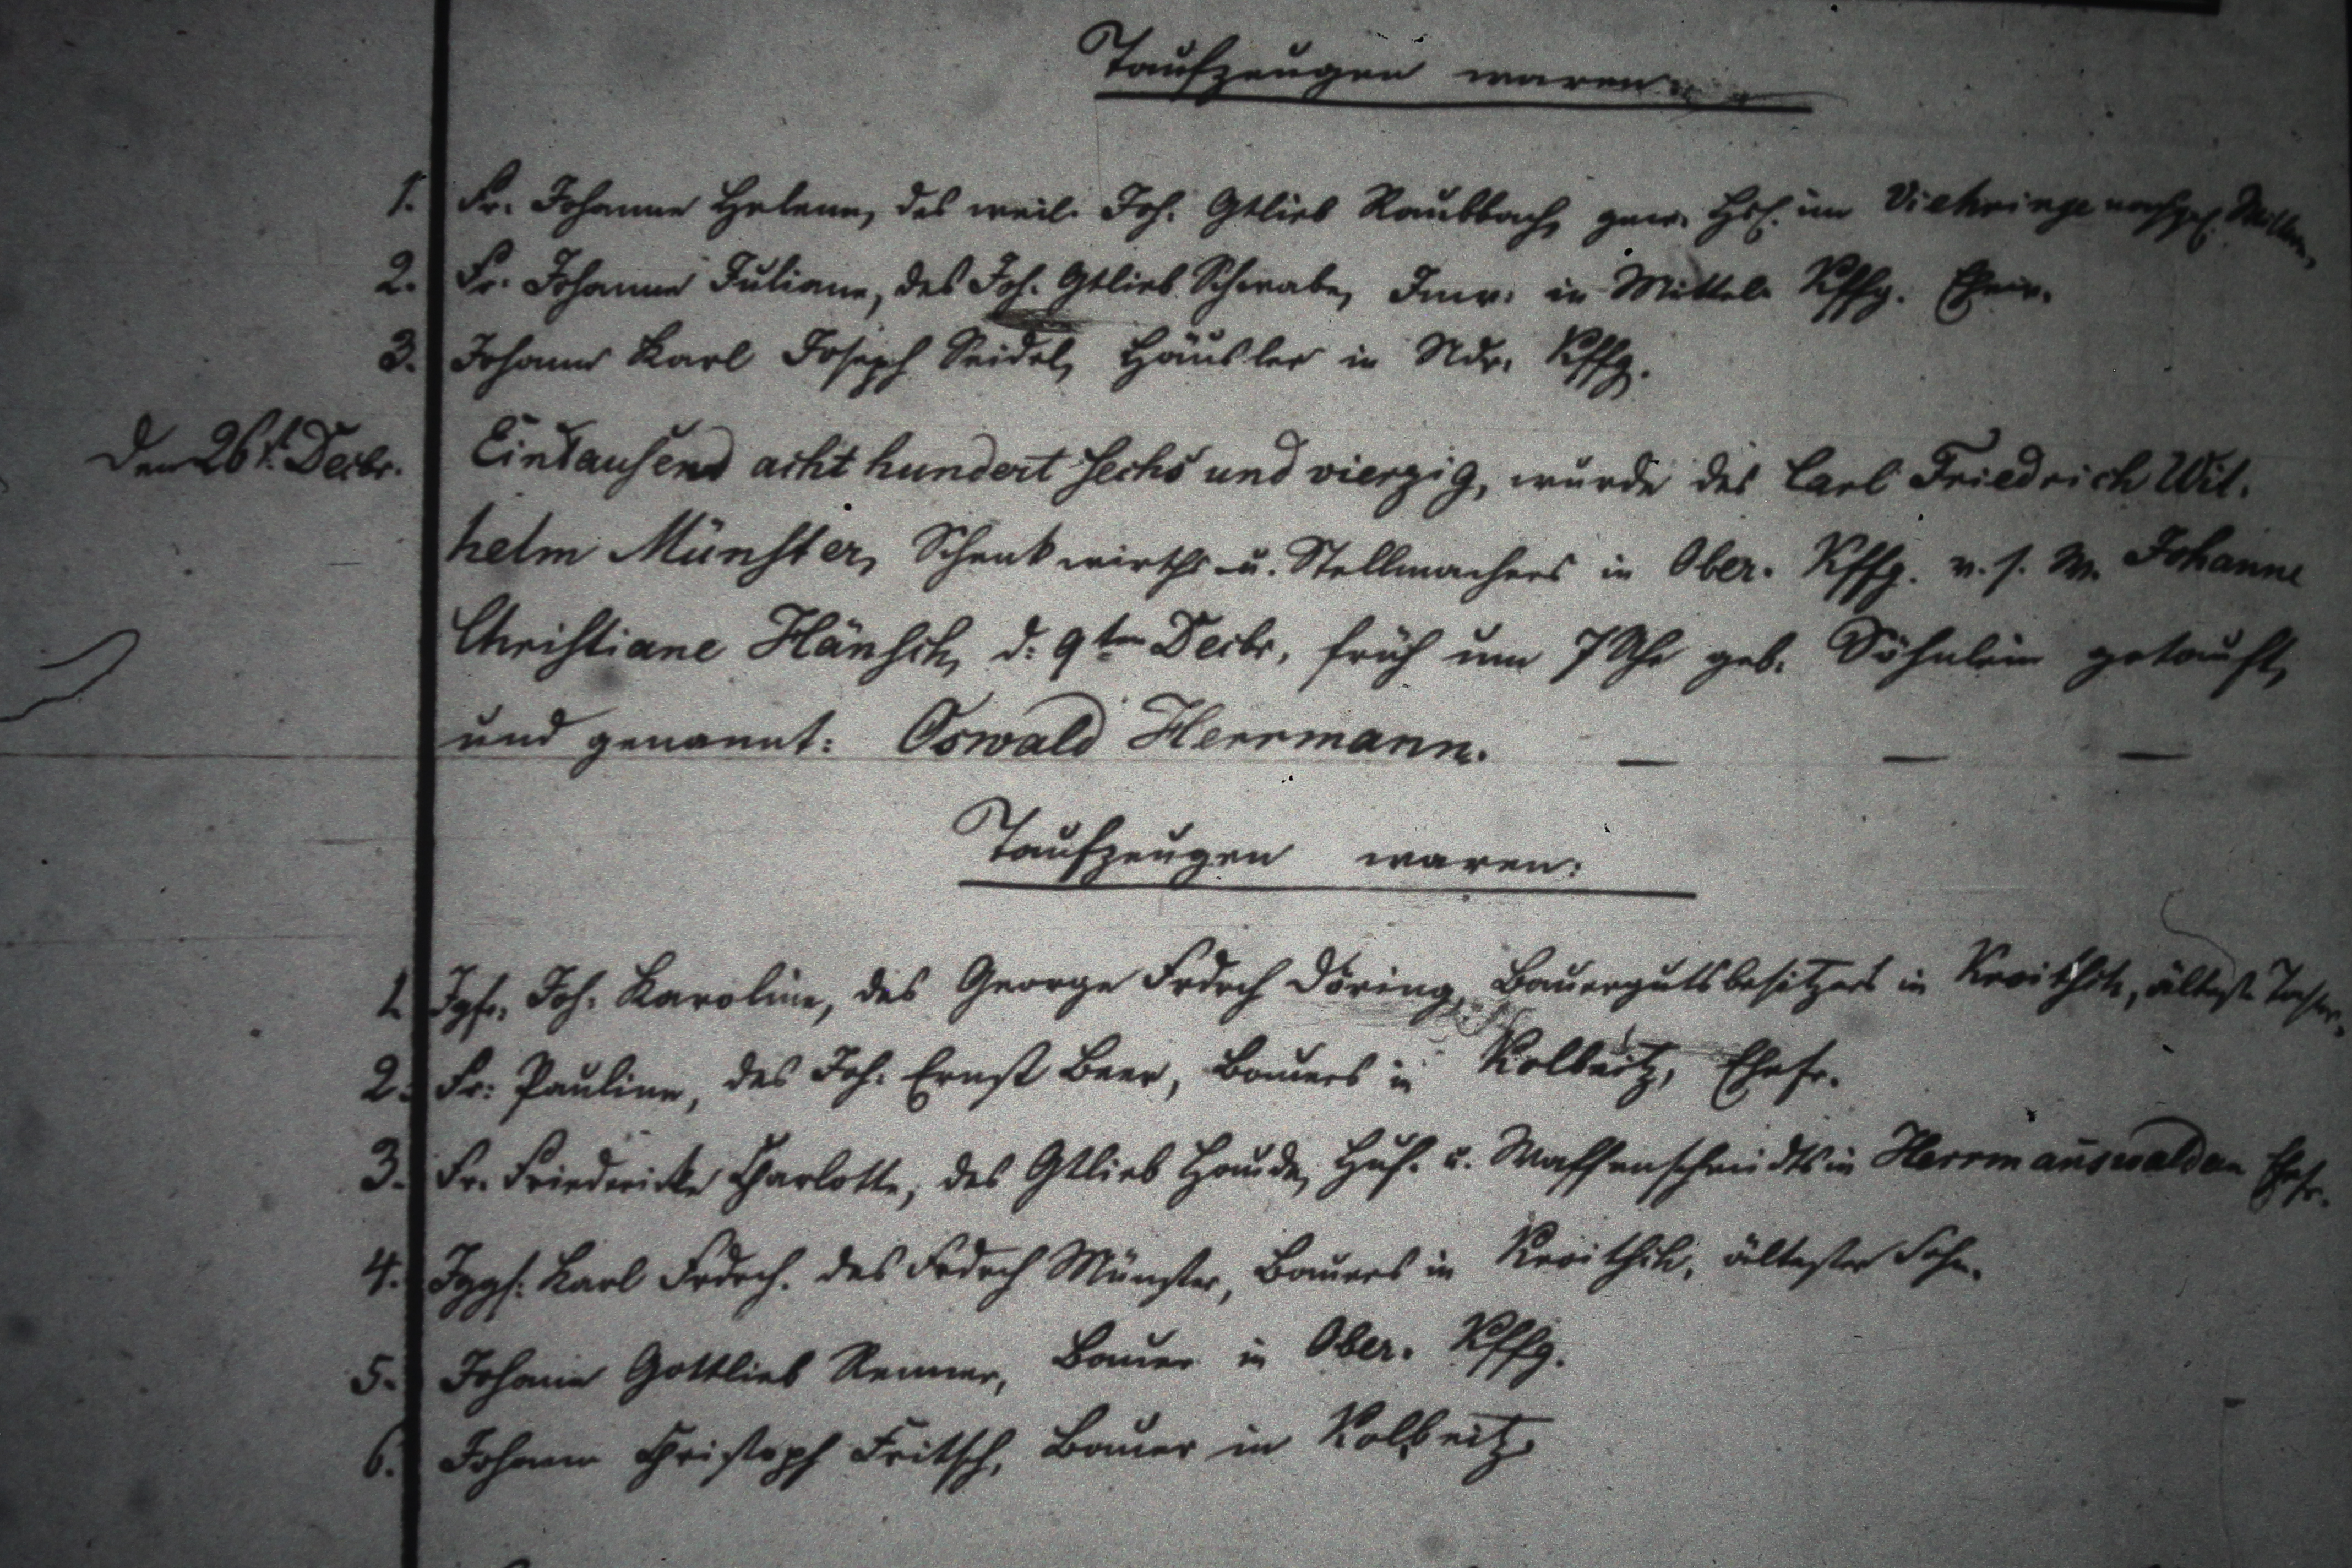 Taufzeugen waren:
1. Fr. Johanne Helene, des weil. Joh. Gtlieb Raubbach, gew. Hsl. im Viehringe nachgel. Wittwe,
2. Fr. Johanne Juliane, des Joh. Gtlieb Schwabe, Inw. in Mittel Kffg. Ehew.
3. Johann Karl Joseph Seidel, Häusler in Ndr. Kffg.
Den 26t. Decbr. Eintausend acht hundert sechs und vierzig, wurde des Carl Friedrich Wil-
helm Münster, Schenkwirths u. Stellmachers in Ober- Kffg. v. s. W. Johanne
Christiane Hänsch, d. 9ten Decbr, früh um 7 Uhr geb. Söhnlein getauft,
und genannt: Oswald Herrmann. — — —
Taufzeugen waren:
1. Jgfr. Joh. Karoline, des George Frdrch Döring, Bauergutsbesitzers in Kroithsch, älteste Tochter.
2. Fr. Pauline, des Joh. Ernst Beer, Bauers in Kolbnitz, Ehefr.
3. Fr. Friedericke Charlotte, des Gtlieb Haude, Huf- u. Waffenschmidts in Herrmanswaldau Ehefr.
4. Jggs. Karl Frdrch. des Frdrch Münster, Bauers in Kroithsch, ältester Sohn.
5. Johann Gottlieb Renner, Bauer in Ober- Kffg.
6. Johann Christoph Fritsch, Bauer in Kolbnitz